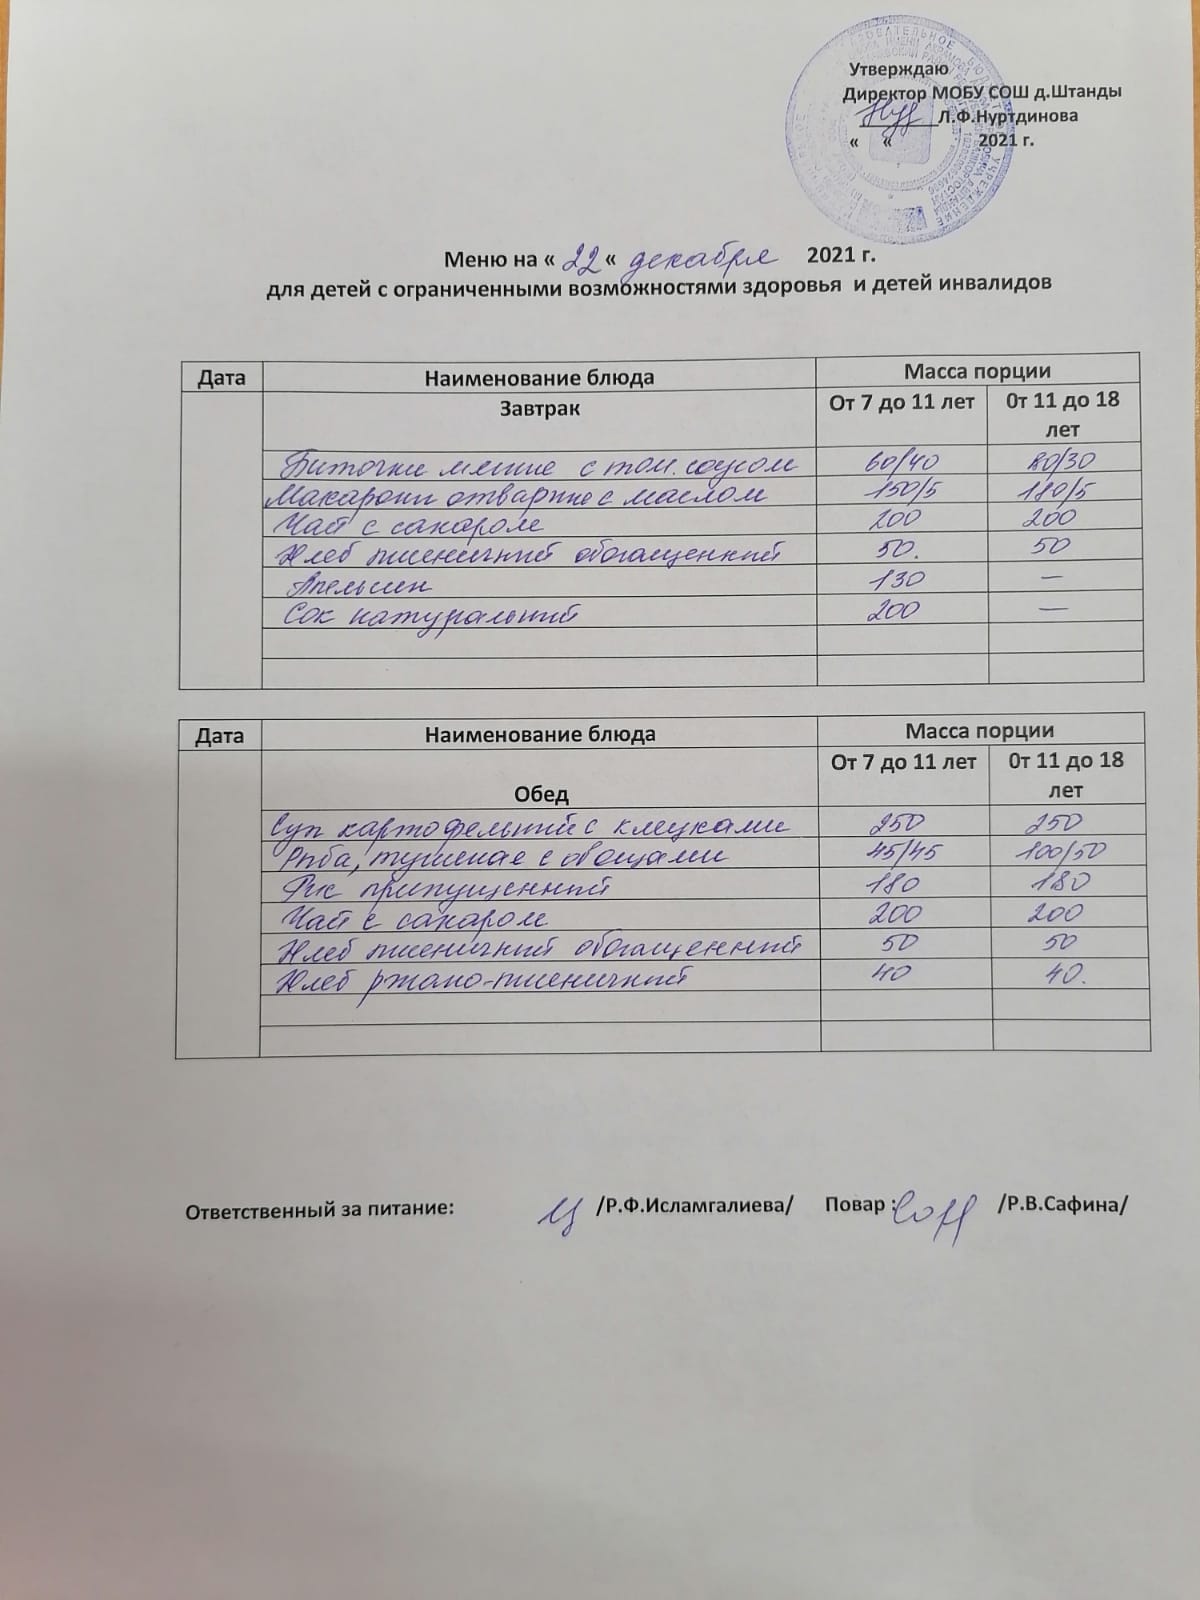 Утверждаю
Директор МОБУ СОШ д.Штанды
Л.Ф.Нуртдинова
« « 2021 г.
Меню на « 22 « декабря 2021 г.
для детей с ограниченными возможностями здоровья и детей инвалидов
Дата Наименование блюда Масса порции
Завтрак От 7 до 11 лет 0т 11 до 18 лет
Биточки мясные с том. соусом 60/40 80/30
Макароны отварные с маслом 150/5 180/5
Чай с сахаром 200 200
Хлеб пшеничный обогащенный 50. 50
Апельсин 130 —
Сок натуральный 200 —
Дата Наименование блюда Масса порции
Обед От 7 до 11 лет 0т 11 до 18 лет
Суп картофельный с клецками 250 250
Рыба, тушеная с овощами 45/45 100/50
Рис припущенный 180 180
Чай с сахаром 200 200
Хлеб пшеничный обогащенный 50 50
Хлеб ржано-пшеничный 40 40.
Ответственный за питание: /Р.Ф.Исламгалиева/ Повар : /Р.В.Сафина/